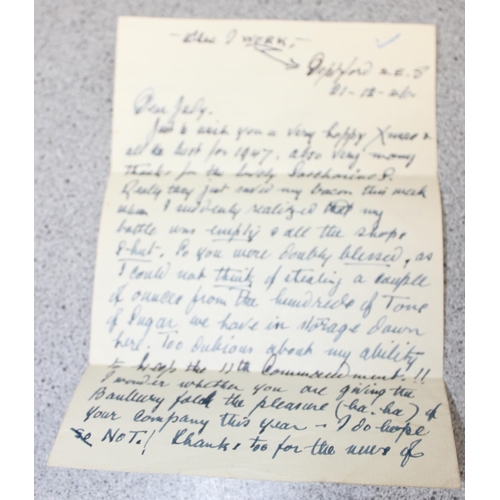 - where I WORK. -
Deptford S.E. 8
21-12-46.
Dear Judy.
Just to wish you a very happy Xmas &
all the best for 1947. also very many
thanks for the lovely Saccharines.
Really they just saved my bacon this week
when I suddenly realized that my
bottle was empty & all the shops
shut. So you were doubly blessed, as
I could not think of stealing a couple
of ounces from the hundreds of Tons
of Sugar we have in storage down
here. Too dubious about my ability
to keep the 11th Commandment.!!
I wonder whether you are giving the
Banbury folk the pleasure (-ha. ha) of
your company this year - I do hope
so NOT.! Thanks too for the news of